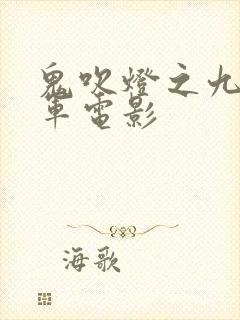 鬼吹燈之九
軍電影
海歌